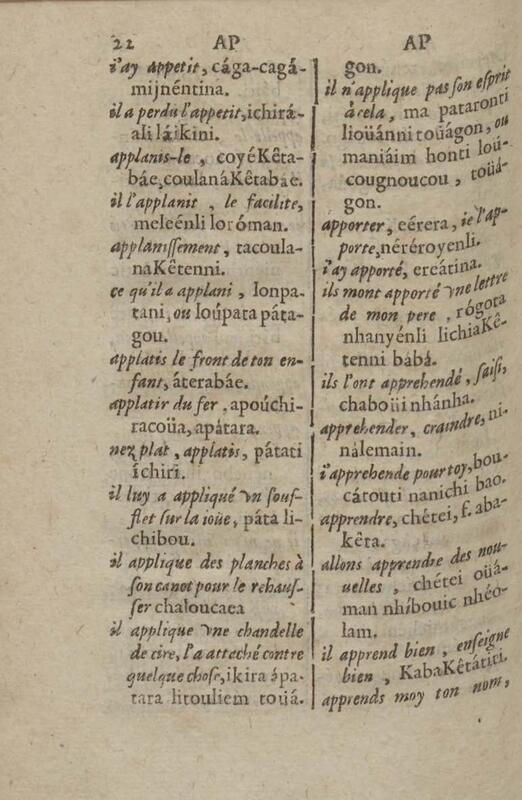 22 AP AP
i'ay appetit, cága-cagá-
mijnéntina.
il a perdu l'appetit, ichirá-
áli láikini.
applanis-le, coyéKêta-
báe, coulanáKêtabae.
il l'applanit, le facilite,
meleénli loróman.
applanissement, tacoula-
naKêtenni.
ce qu'il a applani, Ionpa-
tani, ou loúpata páta-
gou.
applatis le front de ton en-
fant, áterabáe.
applatir du fer, apoúchi-
racoüa, apátara.
nez plat, applatis, pátati
íchiri.
il luy a appliqué vn souf-
flet sur la ioüe, páta li-
chibou.
il applique des planches à
son canot pour le rehaus-
ser chaloucaea
il applique vne chandelle
de cire, l'a attaché contre
quelque chose, ikira ápa-
tara litouliem toüá.
gon.
il n'applique pas son esprit
à cela, ma pataronti
lioüánni toüágon, ou
maniáim honti loú-
cougnoucou, toüá-
gon.
apporter, eérera, ie l'ap-
porte, néréroyenli.
i'ay apporté, ereátina.
ils mont apporté vne lettre
de mon pere, rógota
nhanyénli lichiaKê-
tenni bábá.
ils l'ont apprehendé, saisi,
chaboüi nhánha.
apprehender, craindre, ni-
nálemain.
i'apprehende pour toy, bou-
cátouti nanichi bao.
apprendre, chétei, f. aba-
kêta.
allons apprendre des nou-
uelles, chétei oüá-
man nhíbouic nhéo-
lam.
il apprend bien, enseigne
bien, KabaKêtátiti.
apprends moy ton nom,